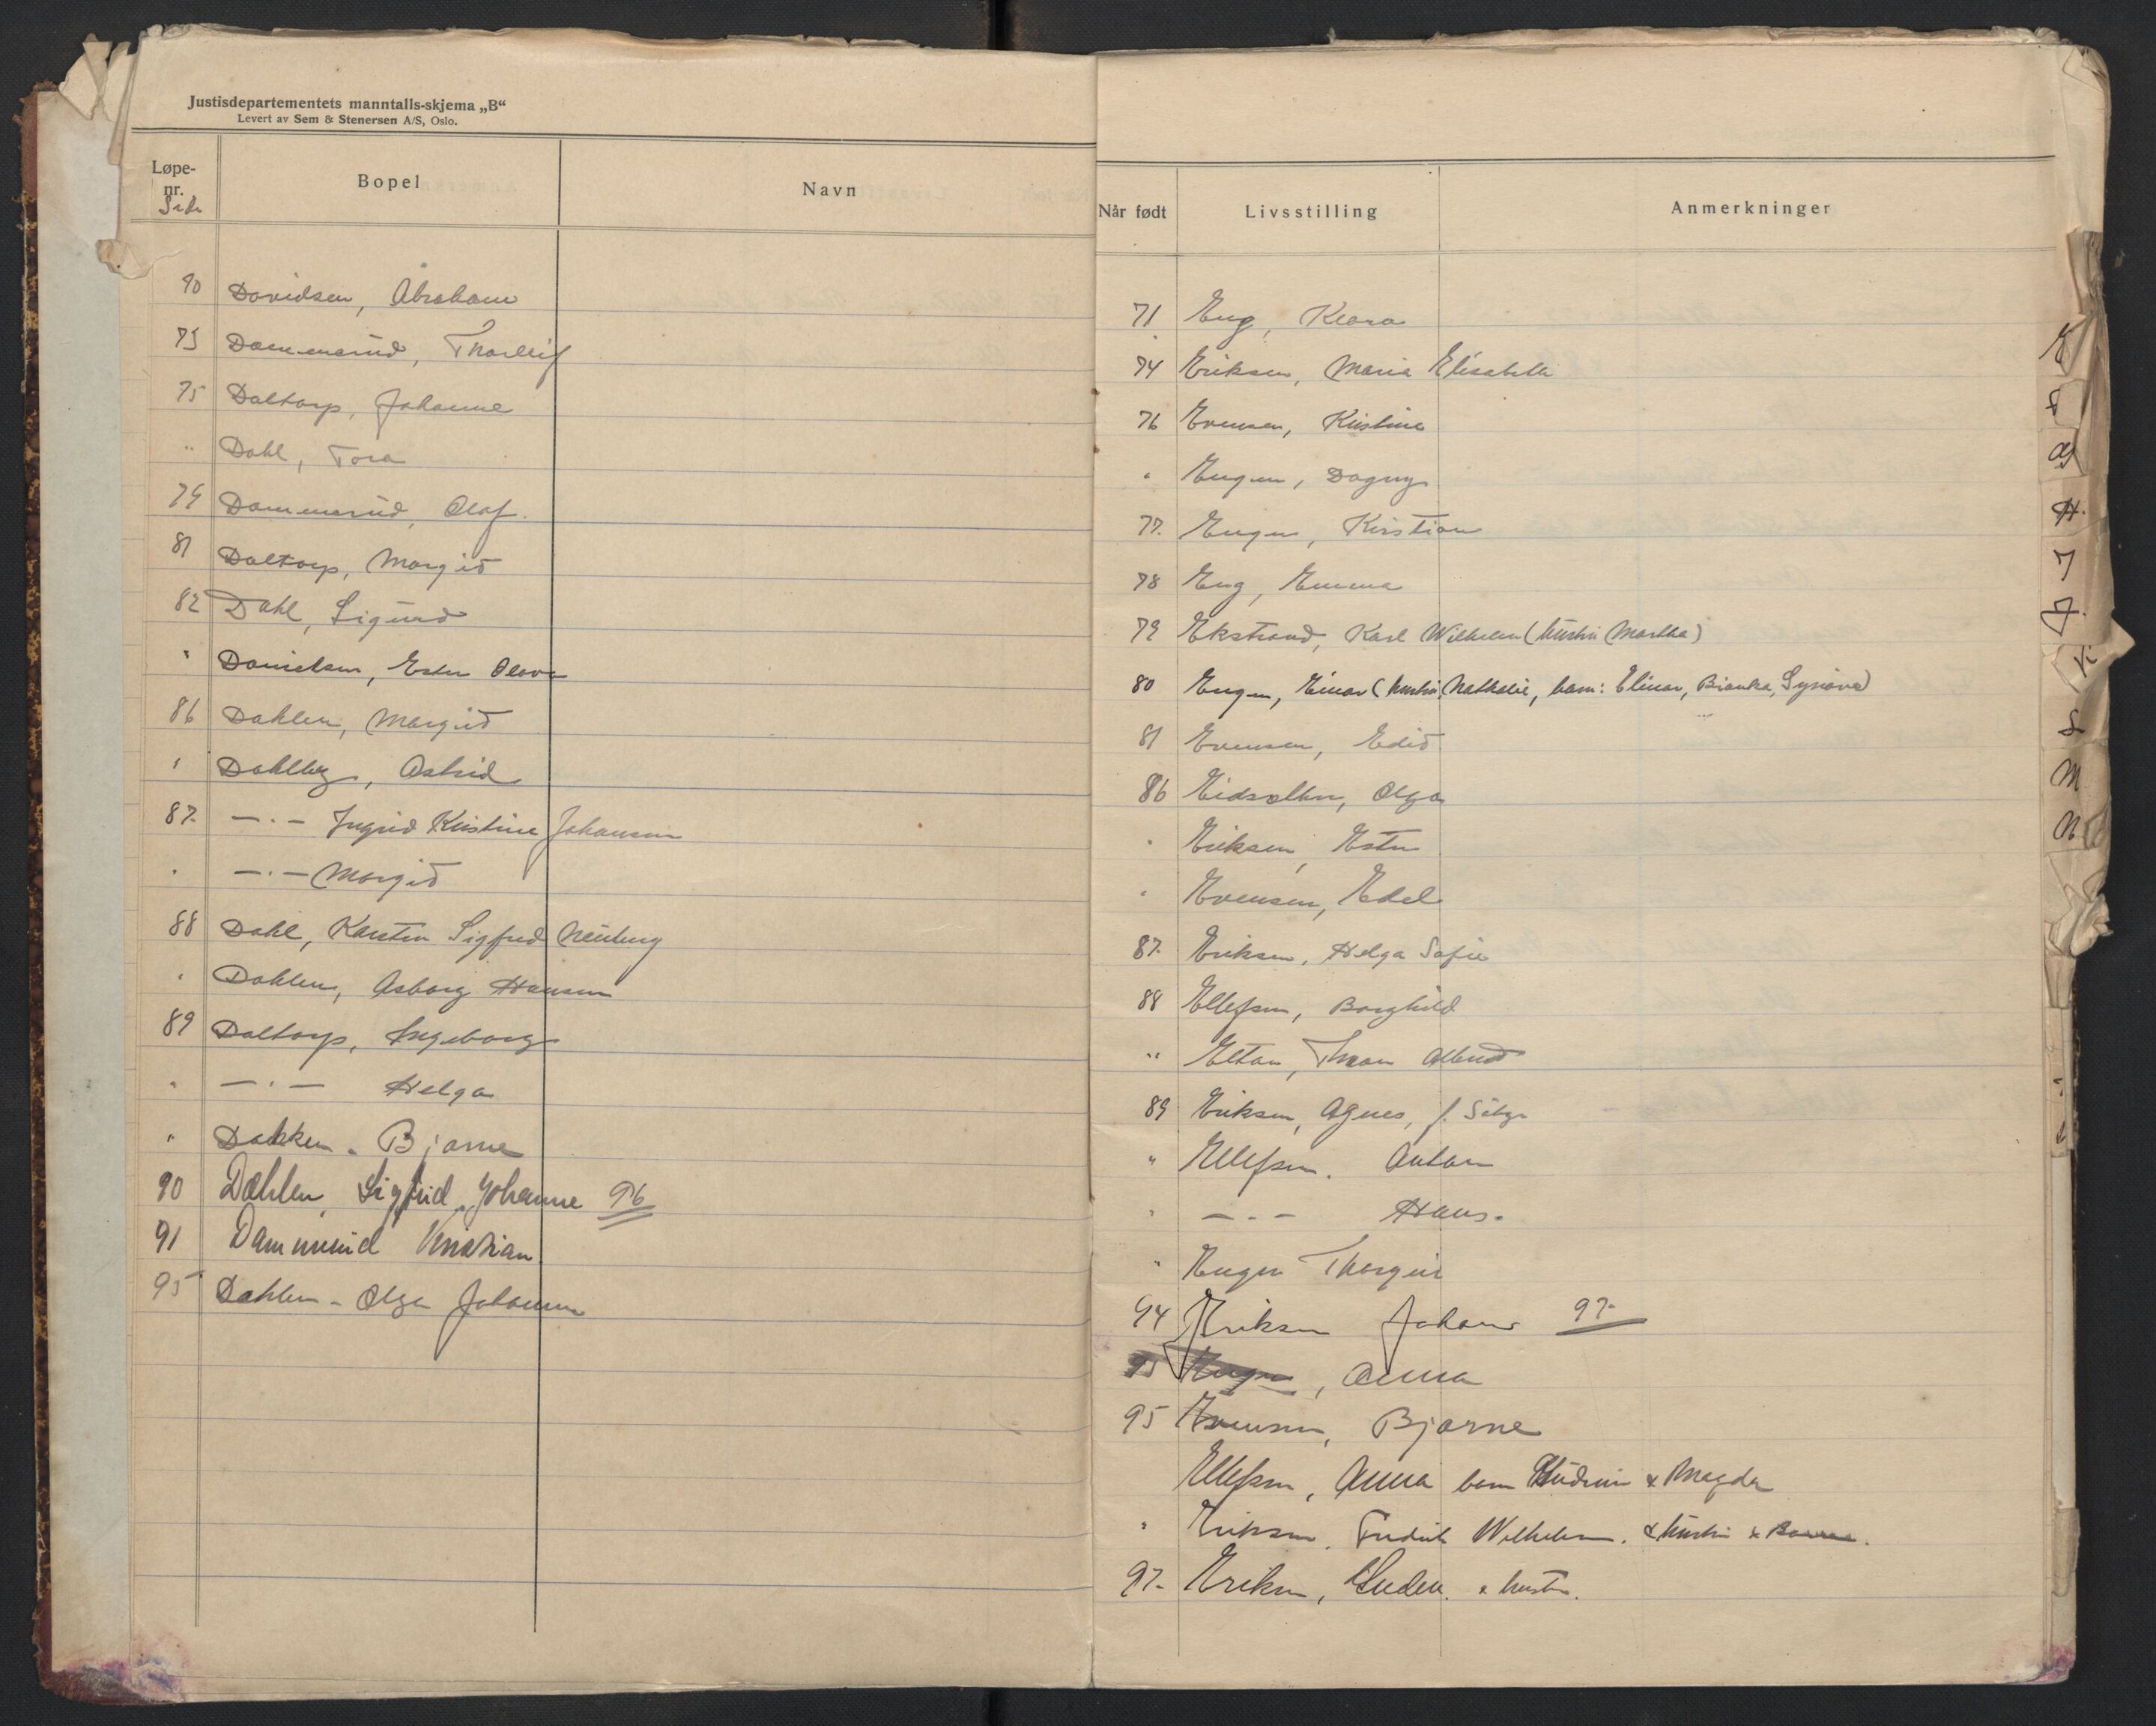 Justisdepartementets manntalls-skjema „B“
Levert av Sem & Stenersen A/S, Oslo.
Løpe-
nr.
Side
Bopel
Navn
70 Davidsen, Abraham
73 Dammerud, Thorleif
75 Daltorp, Johanne
" Dahl, Tora
79 Dammerud, Olaf.
81 Daltorp, Margit
82 Dahl, Sigurd
" Danielsen, Ester Olava
86 Dahlen, Margit
" Dahlby, Astrid
87. —·— Ingrid Kristine Johansen
" —·— Margit
88 Dahl, Karsten Sigfred
" Dahlen, Asborg Hansen
89 Daltorp, Ingeborg
" —·— Helga
" Dakken. Bjarne
90 Dæhlen, Sigfrid Johanne 96
91 Dammerud Kristian
95 Dahlen - Olga Johanne
Når født
Livsstilling
Anmerkninger
71 Eng, Klara
74 Eriksen, Maria Elisabeth
76 Evensen, Kristine
" Engen, Dagny
77. Engen, Kristian
78 Eng, Emma
79 Ekstrand, Karl Wilhelm (hustru Martha)
80 Engen, Einar (hustru Nathalie, barn: Elinar, Bianka, Synøve)
81 Evensen, Edit
86 Eidsæther, Olga
" Eriksen, Ester
" Evensen, Edel
87. Eriksen, Helga Sofie
88 Ellefsen, Borghild
" Elton, Thean Albert
89 Eriksen, Agnes, f.
" Ellefsen. Anton
" —·— Hans.
" Engen Thorgeir
94 Eriksen Johan 97.
95 Engen, Anna
95 Evensen, Bjarne
Ellefsen, Anna barn Gudrun & Magda
" Eriksen. Fredrik Wilhelm. & hustru & Barn.
97. Eriksen, & hustru.
E
F
G
H.
I
J.
K
L
M
N